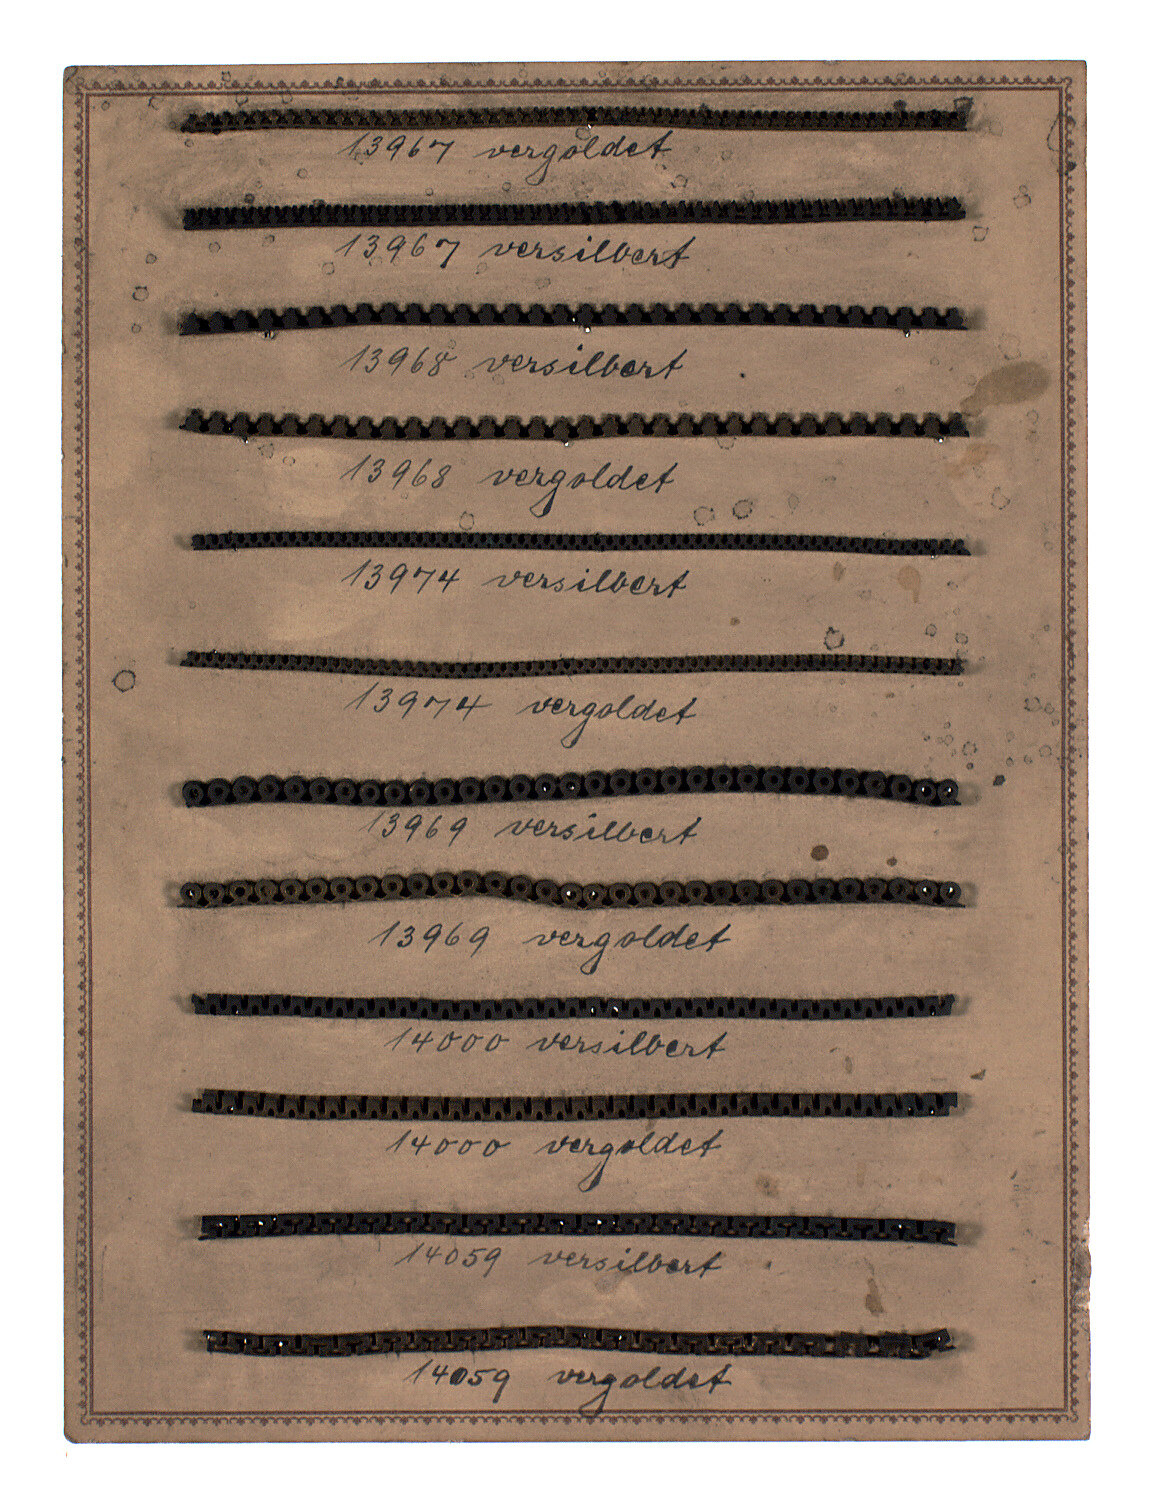 13967 vergoldet
13967 versilbert
13968 versilbert
13968 vergoldet
13974 versilbert
13974 vergoldet
13969 versilbert
13969 vergoldet
14000 versilbert
14000 vergoldet
14059 versilbert
14059 vergoldet